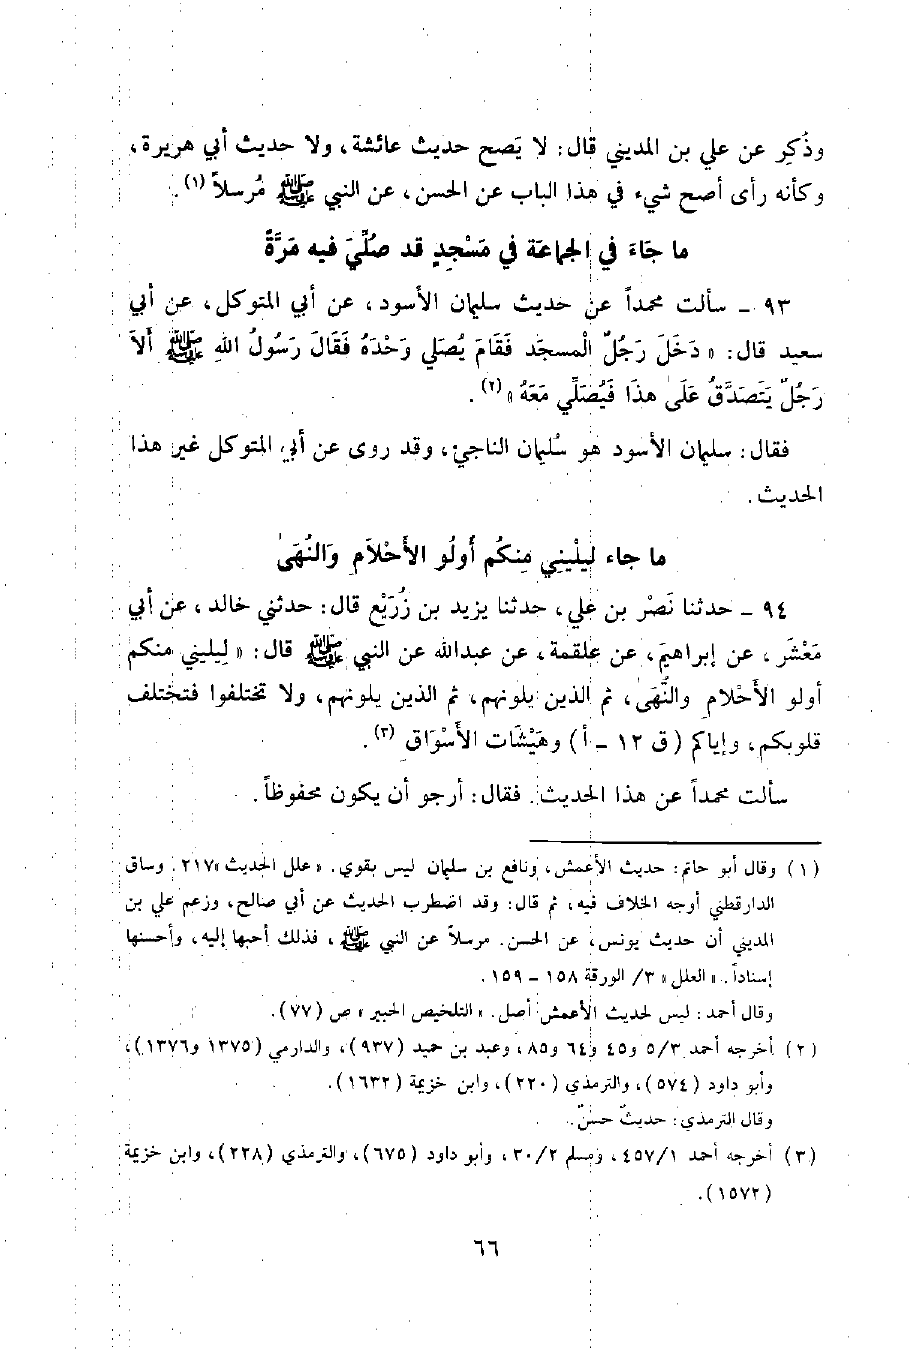 وذُكِر عن علي بن المديني قال: لا يَصح حديث عائشة، ولا حديث أبي هريرة،
وكأنه رأى أصح شيء في هذا الباب عن الحسن، عن النبي ﷺ مُرسلاً (١).
ما جَاءَ في الجماعَة في مَسْجِدٍ قد صُلِّيَ فيه مَرَّةً
٩٣ ـ سألت محمداً عن حديث سليمان الأسود، عن أبي المتوكل، عن أبي
سعيد قال: « دَخَلَ رَجُلٌ الْمسجَد فَقَامَ يُصَلي وَحْدَهُ فَقَالَ رَسُولُ اللهِ ﷺ أَلاَ
رَجُلٌ يَتَصَدَّقُ عَلَى هذَا فَيُصَلِّي مَعَهُ » (٢).
فقال: سليمان الأسود هو سُليمان الناجيُ، وقد روى عن أبي المتوكل غير هذا
الحديث.
ما جاء لِيلْيني مِنكُم أُولُو الأَحْلاَمِ وَالنُهَىٰ
٩٤ ـ حدثنا نَصْر بن علي، حدثنا يزيد بن زُرَيْع قال: حدثني خالد، عن أبي
مَعْشَر، عن إبراهيمَ، عن علقمة، عن عبدالله عن النبي ﷺ قال: « لِيليني منكم
أولو الأَحْلام والنُّهَىٰ، ثم الذين يلونهم، ثم الذين يلونهم، ولا تختلفوا فتختلف
قلوبكم، وإياكم (ق ١٢ ـ أ) وهَيْشَات الأَسْوَاق (٣).
سألت محمداً عن هذا الحديث. فقال: أرجو أن يكون محفوظاً.
(١) وقال أبو حاتم: حديث الأعمش، ونافع بن سليمان ليس بقوي. « علل الحديث »٢١٧. وساق
الدارقطني أوجه الخلاف فيه، ثم قال: وقد اضطرب الحديث عن أبي صالح، وزعم علي بن
المديني أن حديث يونس، عن الحسن. مرسلاً عن النبي ﷺ، فذلك أحبها إليه، وأحسنها
إسناداً. « العلل » ٣/ الورقة ١٥٨ ـ ١٥٩.
وقال أحمد: ليس لحديث الأعمش أصل. « التلخيص الحبير » ص (٧٧).
(٢) أخرجه أحمد ٥/٣ و٤٥ و٦٤ و٨٥، وعبد بن حميد (٩٣٧)، والدارمي (١٣٧٥ و١٣٧٦)،
وأبو داود (٥٧٤)، والترمذي (٢٢٠)، وابن خزيمة (١٦٣٢).
وقال الترمذي: حديثٌ حسنٌ.
(٣) أخرجه أحمد ٤٥٧/١، ومسلم ٣٠/٢، وأبو داود (٦٧٥)، والترمذي (٢٢٨)، وابن خزيمة
(١٥٧٢).
٦٦